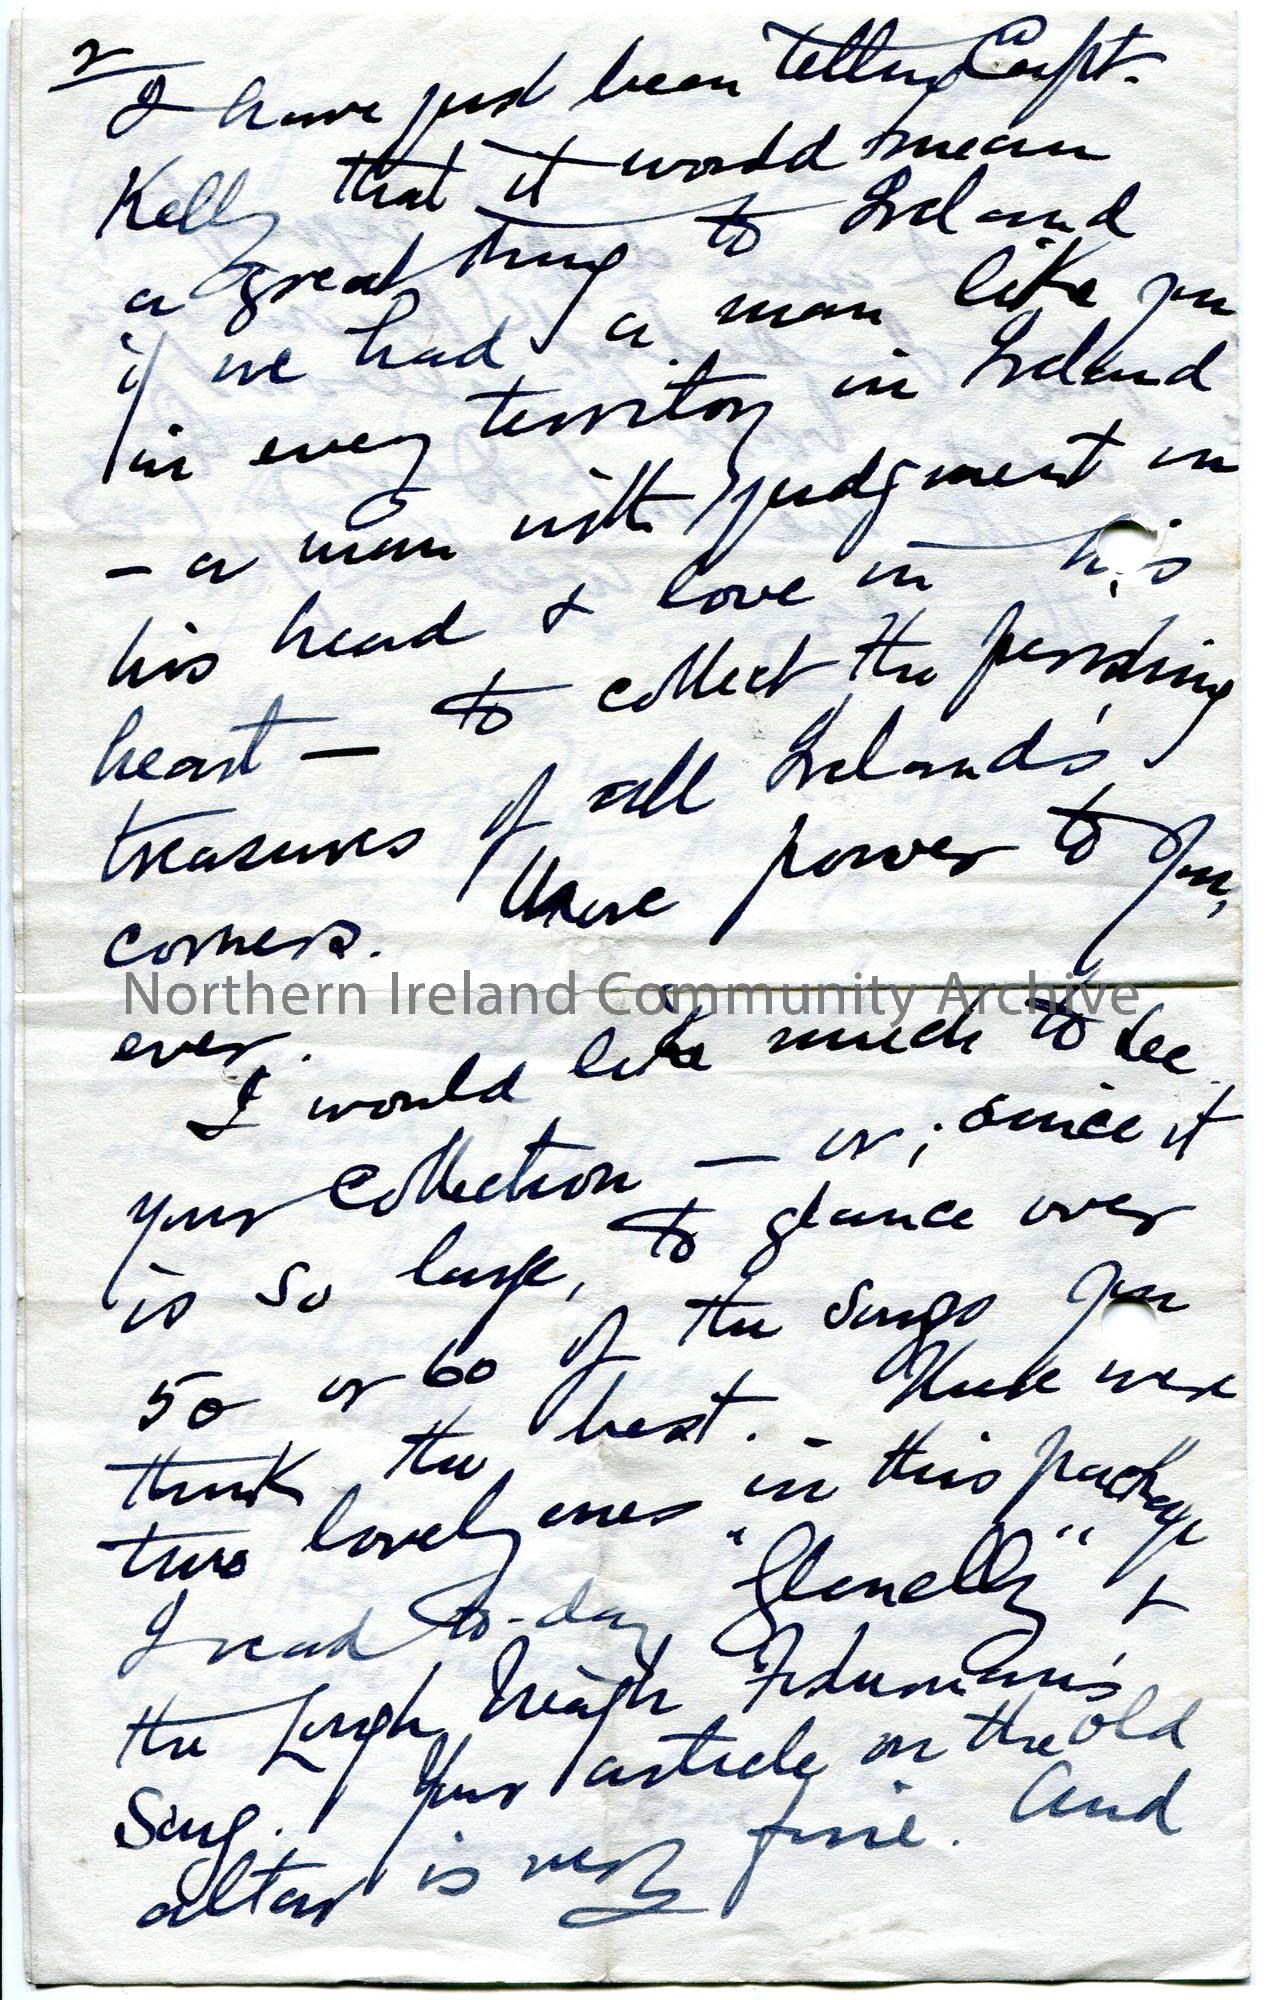 2
I have just been telling Capt.
Kelly that it would mean
a great thing to Ireland
if we had a man like you
in every territory in Ireland
– a man with judgment in
his head & love in his
heart – to collect the perishing
treasures of all Ireland's
corners. More power to you,
Northern Ireland Community Archive
ever.
I would like much to see
your collection – or, since it
is so large, to glance over
50 or 60 of the songs you
think the best. There were
two lovely ones in this package
I read to-day "Glenelly" &
the Lough Neagh Fisherman's
Song. Your article on the old
altar is very fine. And